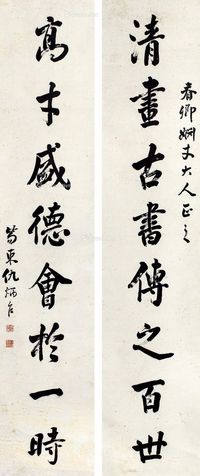 春卿姻丈大人正之
清畫古書傳之百世
高才盛德會於一時
茑東仇炳台